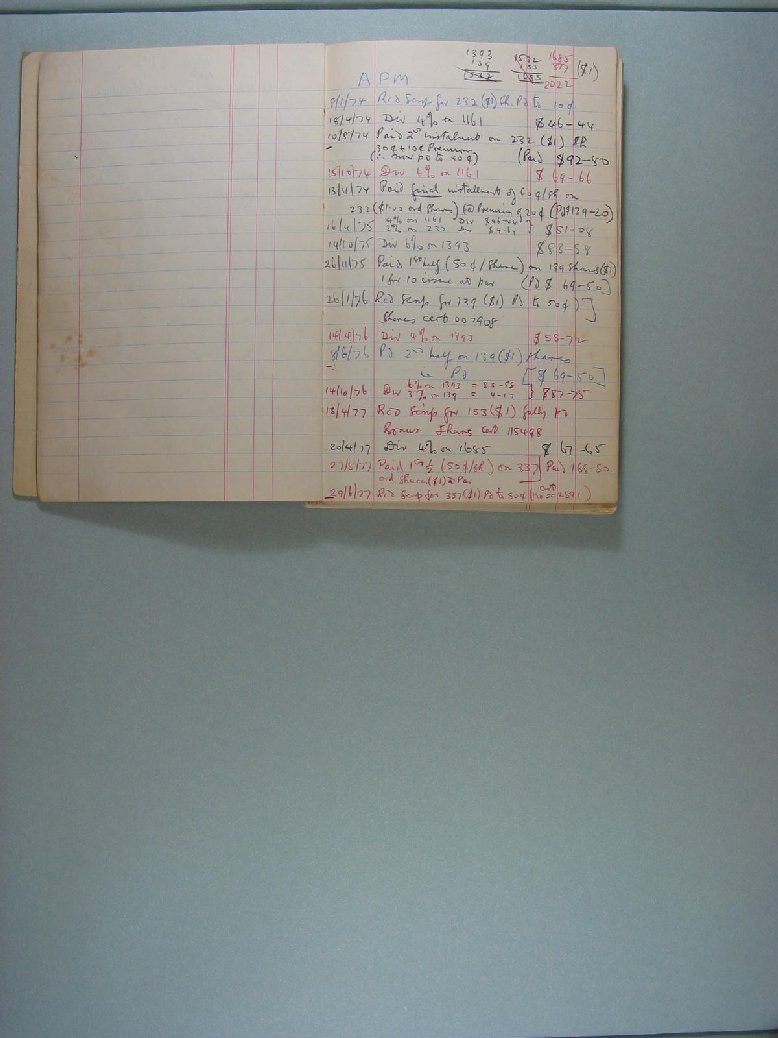 1393 1532 1685
139 153 337 ($1)
1532 1685 2022
A P M
8/1/74 Rcd Scrip for 232 ($1) Sh. Pd to 10¢
18/4/74 Div 4% on 1161 $46-44
10/5/74 Paid 2nd instalment on 232 ($1) Sh
30¢ + 10¢ Premium
(∴ now pd to 40¢) (Pd) $92-80
15/10/74 Div 6% on 1161 $69-66
13/11/74 Paid final instalment of 60¢/sh on
232 ($1.00 ord shares) Premium of 20¢ (Pd $139-20)
16/4/75 4% on 1161 Div $46-44
2% on 232 $4-64 } $51-08
14/10/75 Div 6% on 1393 $83-58
26/11/75 Paid 1st half (50¢/share) on 139 shares ($1)
1 for 10 issue at par (Pd $69-50)
26/1/76 Rcd Scrip for 139 ($1) Pd to 50¢)
Shares cert 007908
14/4/76 Div 4% on 1393 $55-72
8/6/76 Pd 2nd half on 139 ($1) shares
ie Pd [$69-50]
14/10/76 Div 6% on 1393 = 83-58
3% on 139 = 4-17 } $87-75
13/4/77 Rcd Scrip for 153 ($1) fully pd
Bonus Shares Cert 115498
20/4/77 Div 4% on 1685 $67-65
27/5/77 Paid 1st ½ (50¢/sh) on 337 Paid 168-50
ord shares ($1) @ Par
29/6/77 Rcd Scrip for 337 ($1) Pd to 50¢ (cert